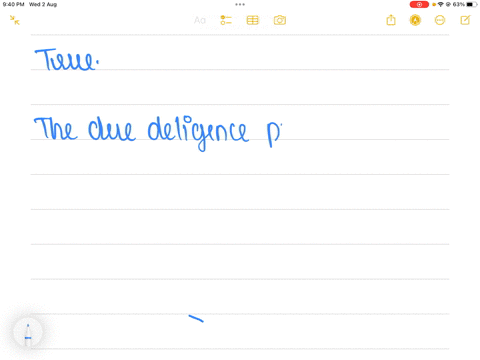 9:40 PM Wed 2 Aug
63%
Aa
True.
The due deligence p